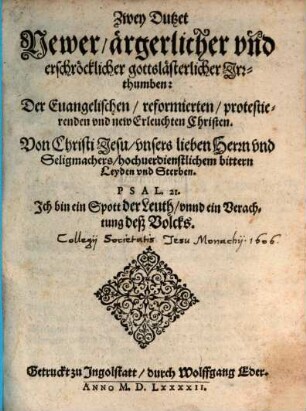 Zwey Dutzet
Newer/ärgerlicher vnd
erschröcklicher gottslästerlicher Irr-
thumben:
Der Euangelischen/reformierten/protestie-
renden vnd new Erleuchten Christen.
Von Christi Jesu/vnsers lieben Herrn vnd
Seligmachers/hochuerdienstlichem bittern
Leyden vnd Sterben.
PSAL. 21.
Ich bin ein Spott der Leuth/vnnd ein Verach-
tung deß Volcks.
Collegij Societatis Iesu Monachij · 1606.
Getruckt zu Ingolstatt/durch Wolffgang Eder.
ANNO M. D. LXXXXII.